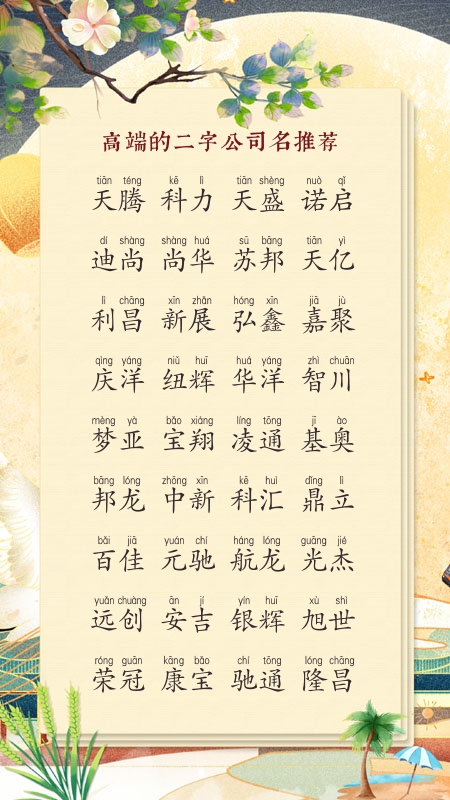 高端的二字公司名推荐
tiān téng kē lì tiān shèng nuò qǐ
天腾 科力 天盛 诺启
dí shàng shàng huá sū bāng tiān yì
迪尚 尚华 苏邦 天亿
lì chāng xīn zhǎn hóng xīn jiā jù
利昌 新展 弘鑫 嘉聚
qìng yáng niǔ huī huá yáng zhì chuān
庆洋 纽辉 华洋 智川
mèng yà bǎo xiáng líng tōng jī ào
梦亚 宝翔 凌通 基奥
bāng lóng zhōng xīn kē huì dǐng lì
邦龙 中新 科汇 鼎立
bǎi jiā yuán chí háng lóng guāng jié
百佳 元驰 航龙 光杰
yuǎn chuàng ān jí yín huī xù shì
远创 安吉 银辉 旭世
róng guān kāng bǎo chí tōng lóng chāng
荣冠 康宝 驰通 隆昌